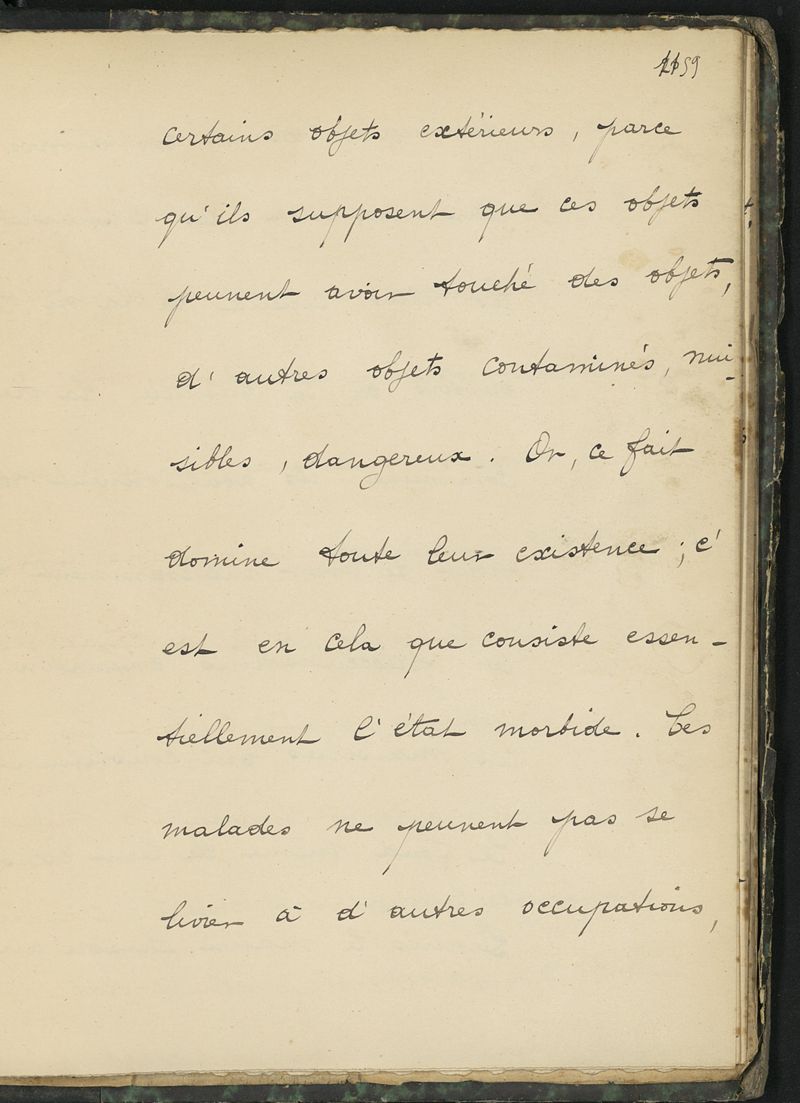 59
certains objets extérieurs, parce
qu'ils supposent que ces objets
peuvent avoir touché des objets,
d'autres objets contaminés, nui-
sibles, dangereux. Or, ce fait
domine toute leur existence ; c'
est en cela que consiste essen-
tiellement l'état morbide. Les
malades ne peuvent pas se
livrer à d'autres occupations,